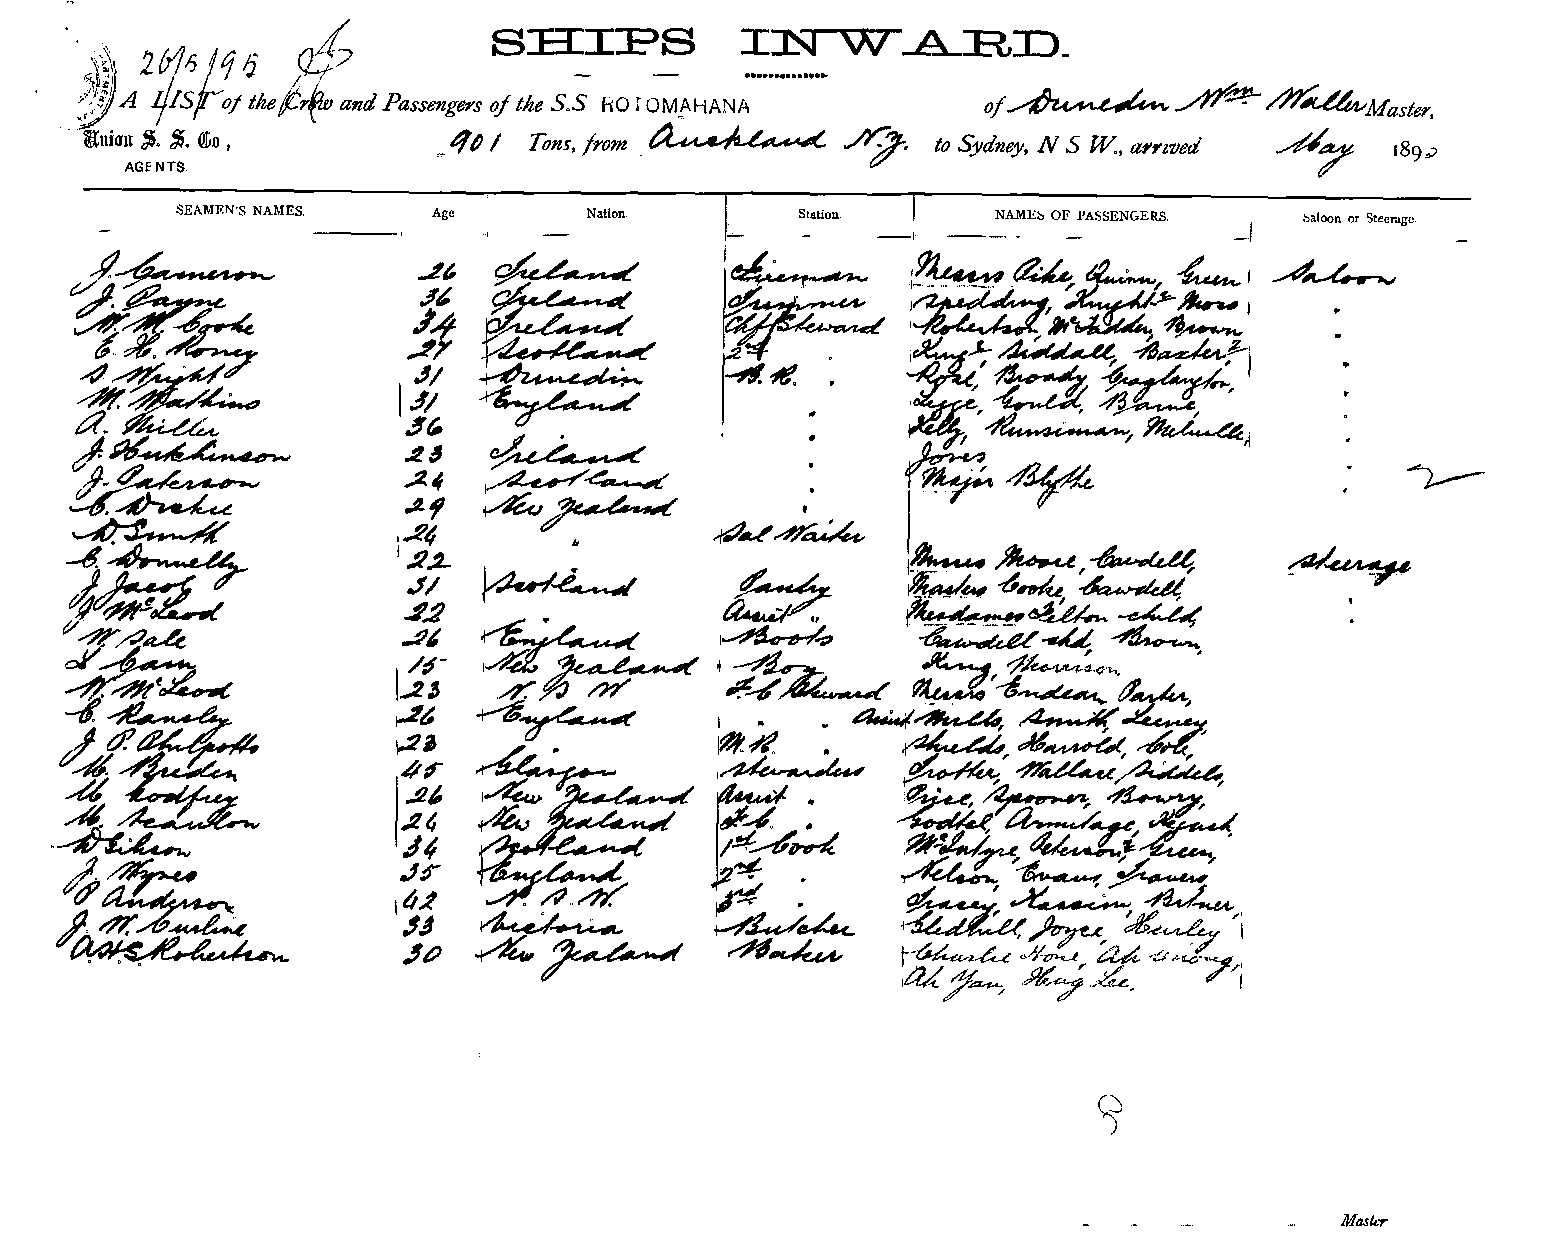 SHIPS INWARD.
26/5/95
A LIST of the Crew and Passengers of the S.S ROTOMAHANA of Dunedin Wm Waller Master,
Union S. S. Co,
AGENTS.
901 Tons, from Auckland N.Z. to Sydney, N S W., arrived May 189
SEAMEN'S NAMES. Age Nation. Station. NAMES OF PASSENGERS. Saloon or Steerage.
J. Cameron 26 Ireland Fireman Messrs Pike, Quinn, Green Saloon
J. Payne 36 Ireland Trimmer Spedding, Knight2 Moss "
W. M. Cooke 34 Ireland Chf Steward Robertson, McFadden, Brown
E. H. Roney 27 Scotland 2nd " King2, Siddall, Baxter2, "
S Wright 31 Dunedin B. R. " Rose, Broady, "
M. Watkins 31 England " Legge, Gould, "
A. Miller 36 " Kelly, Runsiman, Melville, "
J. Hutchinson 23 Ireland " Jones,
J. Paterson 24 Scotland " Major Blythe "
C. Dickie 29 New Zealand "
D. Smith 24 " Sal Waiter
C. Donnelly 22 Misses Moore, Cawdell, Steerage
J. Jacob 31 Scotland Pantry Masters Cooke, Cawdell,
J McLeod 22 Assist " Mesdames Felton child, "
W Sale 26 England Boots Cawdell chd, Brown,
15 New Zealand Boy King, Morrison
W. McLeod 23 N. S W F. C Steward Messrs Endean, Parker,
C. Ransley 26 England " " Assist Mills, Smith, Leeney,
J P. Philpotts 23 M. R. " Shields, Harrold, Cole,
M. Breden 45 Glasgow Stewardess Trotter, Wallace, Siddels,
M Godfrey 26 New Zealand Assist " Spooner, Bowry,
M. Scanlon 24 New Zealand F. C. " Armitage,
D Gibson 34 Scotland 1st Cook McIntyre, Peterson2, Green,
J. Wynes 35 England 2nd " Nelson, Evans, Travers,
P Anderson 42 N. S. W. 3rd " Tracey, Kassim, Bitner,
J. W. Curline 33 Victoria Butcher Gledhill, Joyce, Hurley
A.H.S. Robertson 30 New Zealand Baker Charlie Hone, Ah
Ah Yan, Hug Lee.
Master